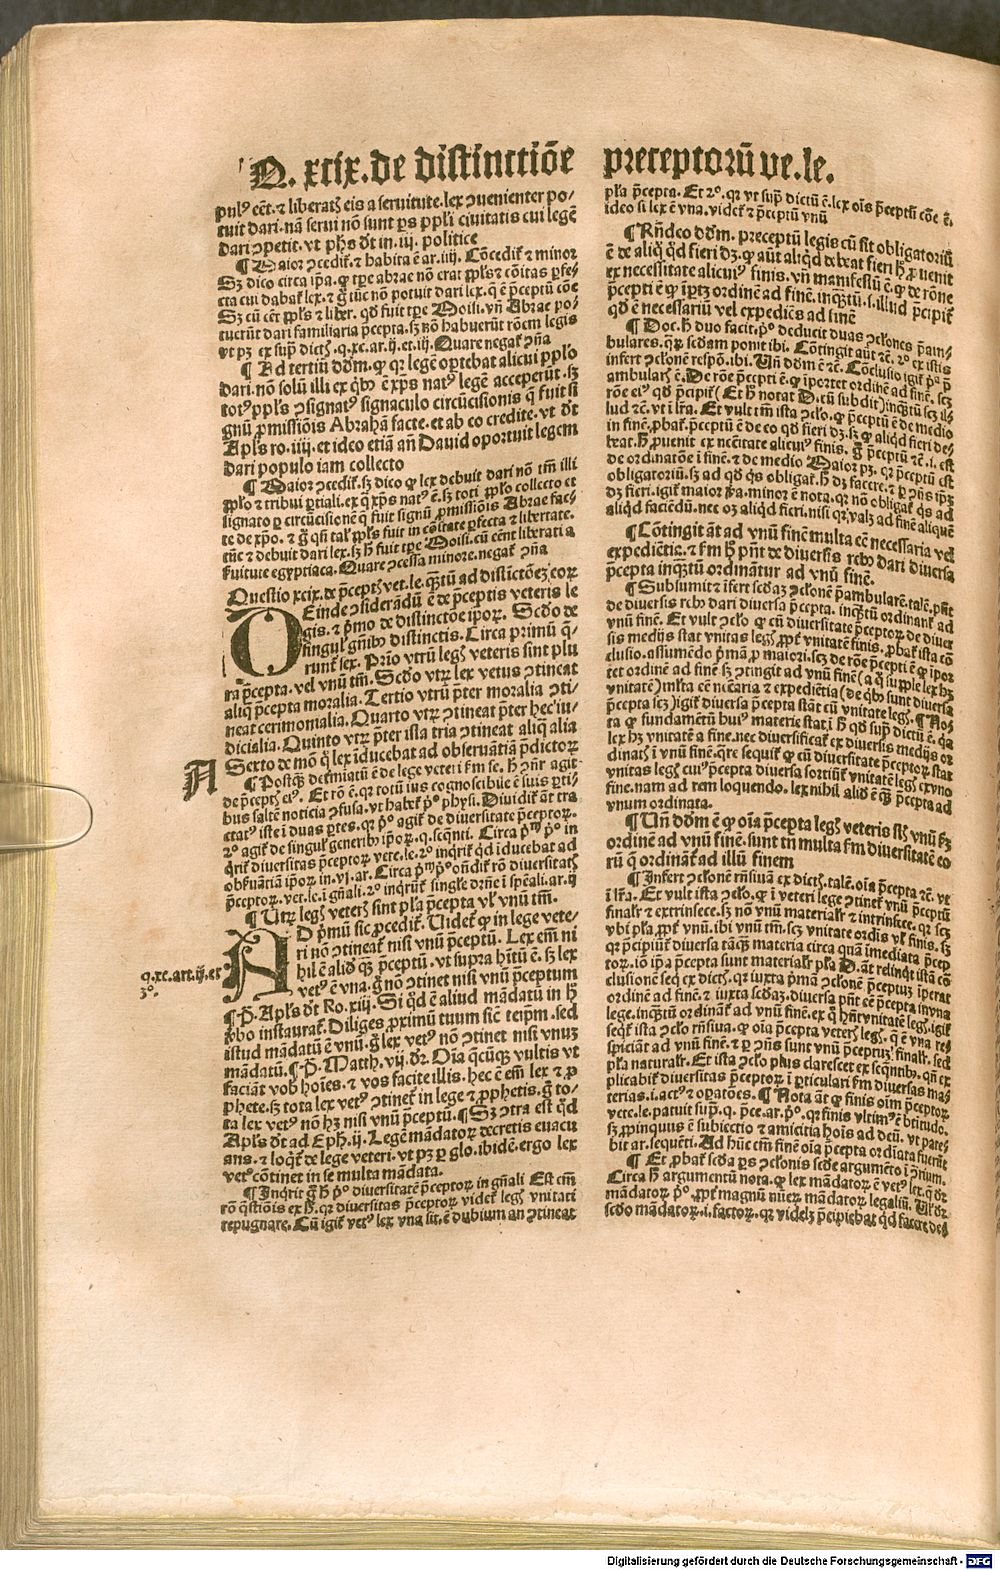 Q. xcix. de distinctiōe preceptoꝝ ve. le.
pulꝰ cēt. ⁊ liberatꝭ eis a seruitute. lex ꝯuenienter po-
tuit dari. nā serui nō sunt ꝑs ppl̓i ciuitatis cui legē
dari ꝯpetit. vt ph̓s dt̄ in. iij. politice
¶ Maior ꝯcedit̉. ⁊ habita ē ar. iiij. Cōcedit̉ ⁊ minor
Sꝫ dico circa ip̄a. ꝙ tꝑe abrae nō erat ppl̓s ⁊ cōitas ꝑfe-
cta cui dabat̉ lex. ⁊ g̊ tūc nō potuit dari lex. q̄ ē p̄ceptū cōe
Sꝫ cū cēt ppl̓s ⁊ liber. qd̓ fuit tꝑe Moisi. vn̄ Abrae po-
tuerūt dari familiaria p̄cepta. sꝫ nō habuerūt rōem legis
vt pꝫ ex sup̄ dictꝭ. q. xc. ar. ij. et. iij. Quare negat̉ ꝯn̄a
¶ Ad tertiū dd̓m. ꝙ qꝛ legē oꝑtebat alicui pplo
dari. nō solū illi ex qb̓ꝰ ē xp̄s natꝰ legē acceperūt. sꝫ
totꝰ ppl̓s ꝯsignatꝰ signaculo circūcisionis q̄ fuit si
gnū ꝓmissiōis Abrahā facte. et ab eo credite. vt dt̄
Apl̓s ro. iiij. et ideo etiā an̄ Dauid oportuit legem
dari populo iam collecto
¶ Maior ꝯcedit̉. sꝫ dico ꝙ lex debuit dari nō tm̄ illi
pplo ⁊ tribui ꝑtiali. ex q̄ xp̄s natꝰ ē. sꝫ toti pplo collecto et
signato ꝑ circūcisionē q̄ fuit signū ꝓmissiōnis Abrae fac-
te de xp̄o. ⁊ g̊ qn̄ tal̓ ppl̓s fuit in cōitate ꝑfecta ⁊ libertate.
tūc ⁊ debuit dari lex. sꝫ h̓ fuit tꝑe Moisi. cū cēnt liberati a
ſuitute egyptiaca. Quare ꝯcessa minore. negat̉ ꝯn̄a
Questio xcix. de p̄ceptꝭ vet. le. q̄tū ad distinctōeꝫ eoꝝ
Deinde ꝯsiderādū ē de p̄ceptis veteris le
gis. ⁊ pͥmo de distinctōe ipoꝝ. Scdo de
singul̓ gn̄ibꝰ distinctis. Circa primū q̄-
runt̉ sex. Prīo vtrū legꝭ veteris sint plu
ra p̄cepta. vel vnū tm̄. Scdo vtꝝ lex vetus ꝯtineat
aliq̄ p̄cepta moralia. Tertio vtrū p̄ter moralia ꝯti-
neat cerimonialia. Quarto vtꝝ ꝯtineat p̄ter hec iu-
dicialia. Quinto vtꝝ p̄ter ista tria ꝯtineat aliq̄ alia
Sexto de mō q̊ lex īducebat ad obseruātiā p̄dictoꝝ
A
¶ Postq̄ꝫ determiatū ē de lege veteri f̓m se. h̓ ꝯn̄r agit
de p̄ceptꝭ eiꝰ. Et rō ē. qꝛ totū ius cognoscibile ē suis ꝑti-
bus saltē noticia ꝯfusa. vt habet̉ pͦ physi. Diuidit̉ āt tra
ctatꝰ iste ī duas ꝑtes. qꝛ pͦ agit̉ de diuersitate p̄ceptoꝝ.
2ͦ agit̉ de singul̓ generibꝰ ip̄oꝝ. q. seq̄nti. Circa pͫ pͦ in
qrit̉ diuersitas p̄ceptoꝝ vete. le. 2ͦ inqrit̉ qd īducebat ad
obẜuātiā ip̄oꝝ in. vj. ar. Circa pͫ pͦ on̄dit̉ rō diuersitatꝭ
p̄ceptoꝝ. vet. le. ī gn̄ali. 2ͦ inqrūt̉ singl̓e dr̄ne ī spēali. ar. ij
¶ Utꝝ legꝭ veterꝭ sint pl̓a p̄cepta vl̓ vnū tm̄.
AD pͥmū sic ꝓcedit̉. Uidet̉ ꝙ in lege vete-
ri nō ꝯtineat̉ nisi vnū p̄ceptū. Lex em̄ ni
hil ē aliō qꝫ p̄ceptū. vt supra hītū ē. sꝫ lex
vetꝰ ē vna. g̊ nō ꝯtinet nisi vnū p̄ceptum
q. xc. art. ij. ex
3ͦ.
¶ P̄. Apl̓s dt̄ Ro. xiij. Si qd̄ ē aliud mandatū in h̓
v̓bo instaurat̉. Diliges ꝓximū tuum sicē teip̄m. sed
istud mādatū ē vnū. g̊ lex vetꝰ nō ꝯtinet nisi vnuꝫ
mādatū. ¶ P̄. Matth. vij. dr̄. Oīa q̄cūqꝫ vultis vt
faciāt vob̓ hoīes. ⁊ vos facite illis. hec ē em̄ lex ⁊ ꝓ
phete. sꝫ tota lex vetꝰ ꝯtinet̉ in lege ⁊ ꝓphetis. g̊ to-
ta lex vetꝰ nō hꝫ nisi vnū p̄ceptū. ¶ Sꝫ ꝯtra est qd̓
Apl̓s dt̄ ad Eph. ij. Legē mādatoꝝ decretis euacu
ans. ⁊ loqt̉ de lege veteri. vt pꝫ ꝑ glo. ibidē. ergo lex
vetꝰ cōtinet in se multa mādata.
¶ Inqrit g̊ h̓ pͦ diuersitatē p̄ceptoꝝ in gn̄ali Est em̄
rō q̄stiōis ex h̓. qꝛ diuersitas p̄ceptoꝝ videt̉ legꝭ vnitati
repugnare. Cū igit̉ vetꝰ lex vna sit. ē dubium an ꝯtineat
pl̓a p̄cepta. Et 2ͦ. qꝛ vt sup̄ dictū ē. lex oīs p̄ceptū cōe ē.
ideo si lex ē vna. videt̉ ⁊ p̄ceptū vnū
¶ Rn̄deo dd̓m. preceptū legis cū sit obligatoriū
ē de aliq̊ qd̓ fieri dꝫ. ꝙ aūt aliqd̓ debeat fieri h̓ ꝓuenit
ex necessitate alicuiꝰ finis. vn̄ manifestū ē. ꝙ de rōne
p̄cepti ē ꝙ īportꝫ ordinē ad finē. inq̄tū. s. illud p̄cipit̉
qd̓ ē necessariū vel expediēs ad finē
¶ Doc. h̓ duo facit. pͦ deducit duas ꝯclones p̄am-
bulares. qꝝ scdam ponit ibi. Cōtingit aūt ⁊c. 2ͦ ex istis
infert ꝯclonē respō. ibi. Un̄ dd̓m ē ⁊c. Cōclusio igit̉ pͣ p̄
ambularꝭ ē. De rōe p̄cepti ē. ꝙ īportet ordinē ad finē. scꝫ
rōe eiꝰ qd̓ p̄cipit̉ (Et h̓ notat D. cū subdit) inq̄tuꝫ scꝫ il-
lud ⁊c. vt ī lr̄a. Et vult tm̄ ista ꝯclo. ꝙ p̄ceptū ē de medio
in finē. ꝓbat̉. p̄ceptū ē de eo qd̓ fieri dꝫ. sꝫ ꝙ aliqd̓ fieri de-
beat. h̓ ꝓuenit ex nec̄itate alicuiꝰ finis. g̊ p̄ceptū ⁊c. i. est
de ordinatōe ī finē. ⁊ de medio Maior pꝫ. qꝛ p̄ceptū est
obligatoriū. sꝫ ad qd̓ qs obligat̉. h̓ dꝫ facere. ⁊ ꝑ ꝯn̄s ip̄ꝫ
dꝫ fieri. igit̉ maior ṽa. minor ē nota. qꝛ nō obligat̉ qs ad
aliqd̓ faciēdū. nec oꝫ aliqd̓ fieri. nisi qꝛ valꝫ ad finē aliquē
¶ Cōtingit āt ad vnū finē multa cē necessaria vel
expediētia. ⁊ f̓m h̓ pn̄t de diuersis rebꝰ dari diuersa
p̄cepta inq̄tū ordinātur ad vnū finē.
¶ Subsumit ⁊ īfert scd̓aꝫ ꝯclonē p̄ambularē. talē. pn̄t
de diuersis rebꝰ dari diuersa p̄cepta. inq̄tū ordinant̉ ad
vnū finē. Et vult ꝯclo ꝙ cū diuersitate p̄ceptoꝝ de diuer
sis medijs stat vnitas legꝭ. ꝓpt̉ vnitatē finis. ꝓbat̉ ista cō
clusio. assumēdo pͥmā ꝓ maiori. scꝫ de rōe p̄cepti ē ꝙ īpor
tet ordinē ad finē sꝫ ꝯtingit ad vnū finē (a q̊ supple lex hꝫ
vnitatē) ml̓ta cē nec̄aria ⁊ expediētia (de qb̓ꝰ sunt diuersa
p̄cepta scꝫ) igit̉ diuersa p̄cepta stāt cū vnitate legꝭ. ¶ No-
ta ꝙ fundamētū huiꝰ materie stat ī h̓ qd̓ sup̄ dictū ē. qꝛ
lex hꝫ vnitatē a fine. nec diuersificat̉ ex diuersis medijs or
dinatꝭ ī vnū finē. q̄re sequit̉ ꝙ cū diuersitate p̄ceptoꝝ stat
vnitas legꝭ cuiꝰ p̄cepta diuersa sortiūt̉ vnitatē legꝭ ex vno
fine. nam ad rem loquendo. lex nihil aliō ē qꝫ p̄cepta ad
vnum ordinata.
¶ Un̄ dd̓m ē ꝙ oīa p̄cepta legꝭ veteris st̄ vnū f̓m
ordinē ad vnū finē. sunt tn̄ multa f̓m diuersitatē eo
rū q̄ ordinant̉ ad illū finem
¶ Infert ꝯclonē rn̄siuā ex dictꝭ. talē. oīa p̄cepta ⁊c. vt
ī lr̄a. Et vult ista ꝯclo. ꝙ ī veteri lege ꝯtinet̉ vnū p̄ceptū
finalr̄ ⁊ extrinsece. sꝫ nō vnū materialr̄ ⁊ intrinsece. qꝛ scꝫ
vbi pl̓a. ꝓpt̉ vnū. ibi vnū tm̄. scꝫ vnitate ordīs vl̓ finis. sꝫ
qꝛ p̄cipiūt̉ diuersa tāq̄ꝫ materia circa quā īmediata p̄cep
toꝝ. iō ip̄a p̄cepta sunt materialr̄ pl̓a D. āt relinqt ista cō
clusionē seq̄ ex dictꝭ. qꝛ iuxta pͥmā ꝯclonē p̄ceptuꝫ īperat
ordinē ad finē. ⁊ iuxta scd̓aꝫ. diuersa pn̄t cē p̄cepta in vna
lege. inq̄tū ordinant̉ ad vnū finē. ex q̊ hn̄t vnitatē legꝭ. igit̉
seqt̉ ista ꝯclo rn̄siua. ꝙ oīa p̄cepta veterꝭ legꝭ. q̄ ē vna re-
spiciāt ad vnū finē. ⁊ ꝑ ꝯn̄s sunt vnū p̄ceptuꝫ finalr̄. sed
pl̓a naturalr̄. Et ista ꝯclo plus clarescet ex seq̄ntibꝰ. qn̄ ex
plicabit̉ diuersitas p̄ceptoꝝ ī ꝑticulari f̓m diuersas ma-
terias. i. actꝰ ⁊ oꝑatōes. ¶ Nota āt ꝙ finis oīm p̄ceptoꝝ
vete. le. patuit sup̄. q. p̄ce. ar. pͦ. qꝛ finis vltimꝰ ē btitudo.
sꝫ ꝓpinquus ē subiectio ⁊ amicitia hoīs ad deū. vt pate-
bit ar. sequēti. Ad hūc tm̄ finē oīa p̄cepta ordiata fuerūt
¶ Et ꝓbat̉ scd̓a ꝑs ꝯclonis scd̓e argumēto ī ꝯrium.
Circa h̓ argumentū nota. ꝙ lex mādatoꝝ ē vetꝰ lex. qꝛ dr̄
mādatoꝝ pͦ. ꝓpt̉ magnū nūeꝝ mādatoꝝ legaliū. Ul̓ dr̄
scd̓o mādatoꝝ. i. factoꝝ. qꝛ videlꝫ p̄cipiebat qd̓ facere de-
Digitalisierung gefördert durch die Deutsche Forschungsgemeinschaft - DFG